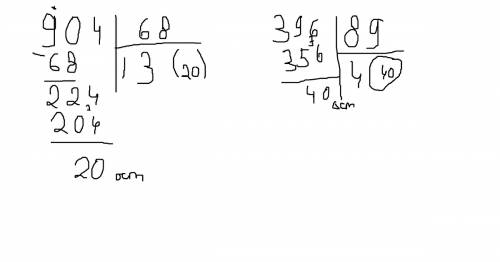 904 68
68 13 (20)
224
204
20 ост
396 89
356 4 40
40 ост